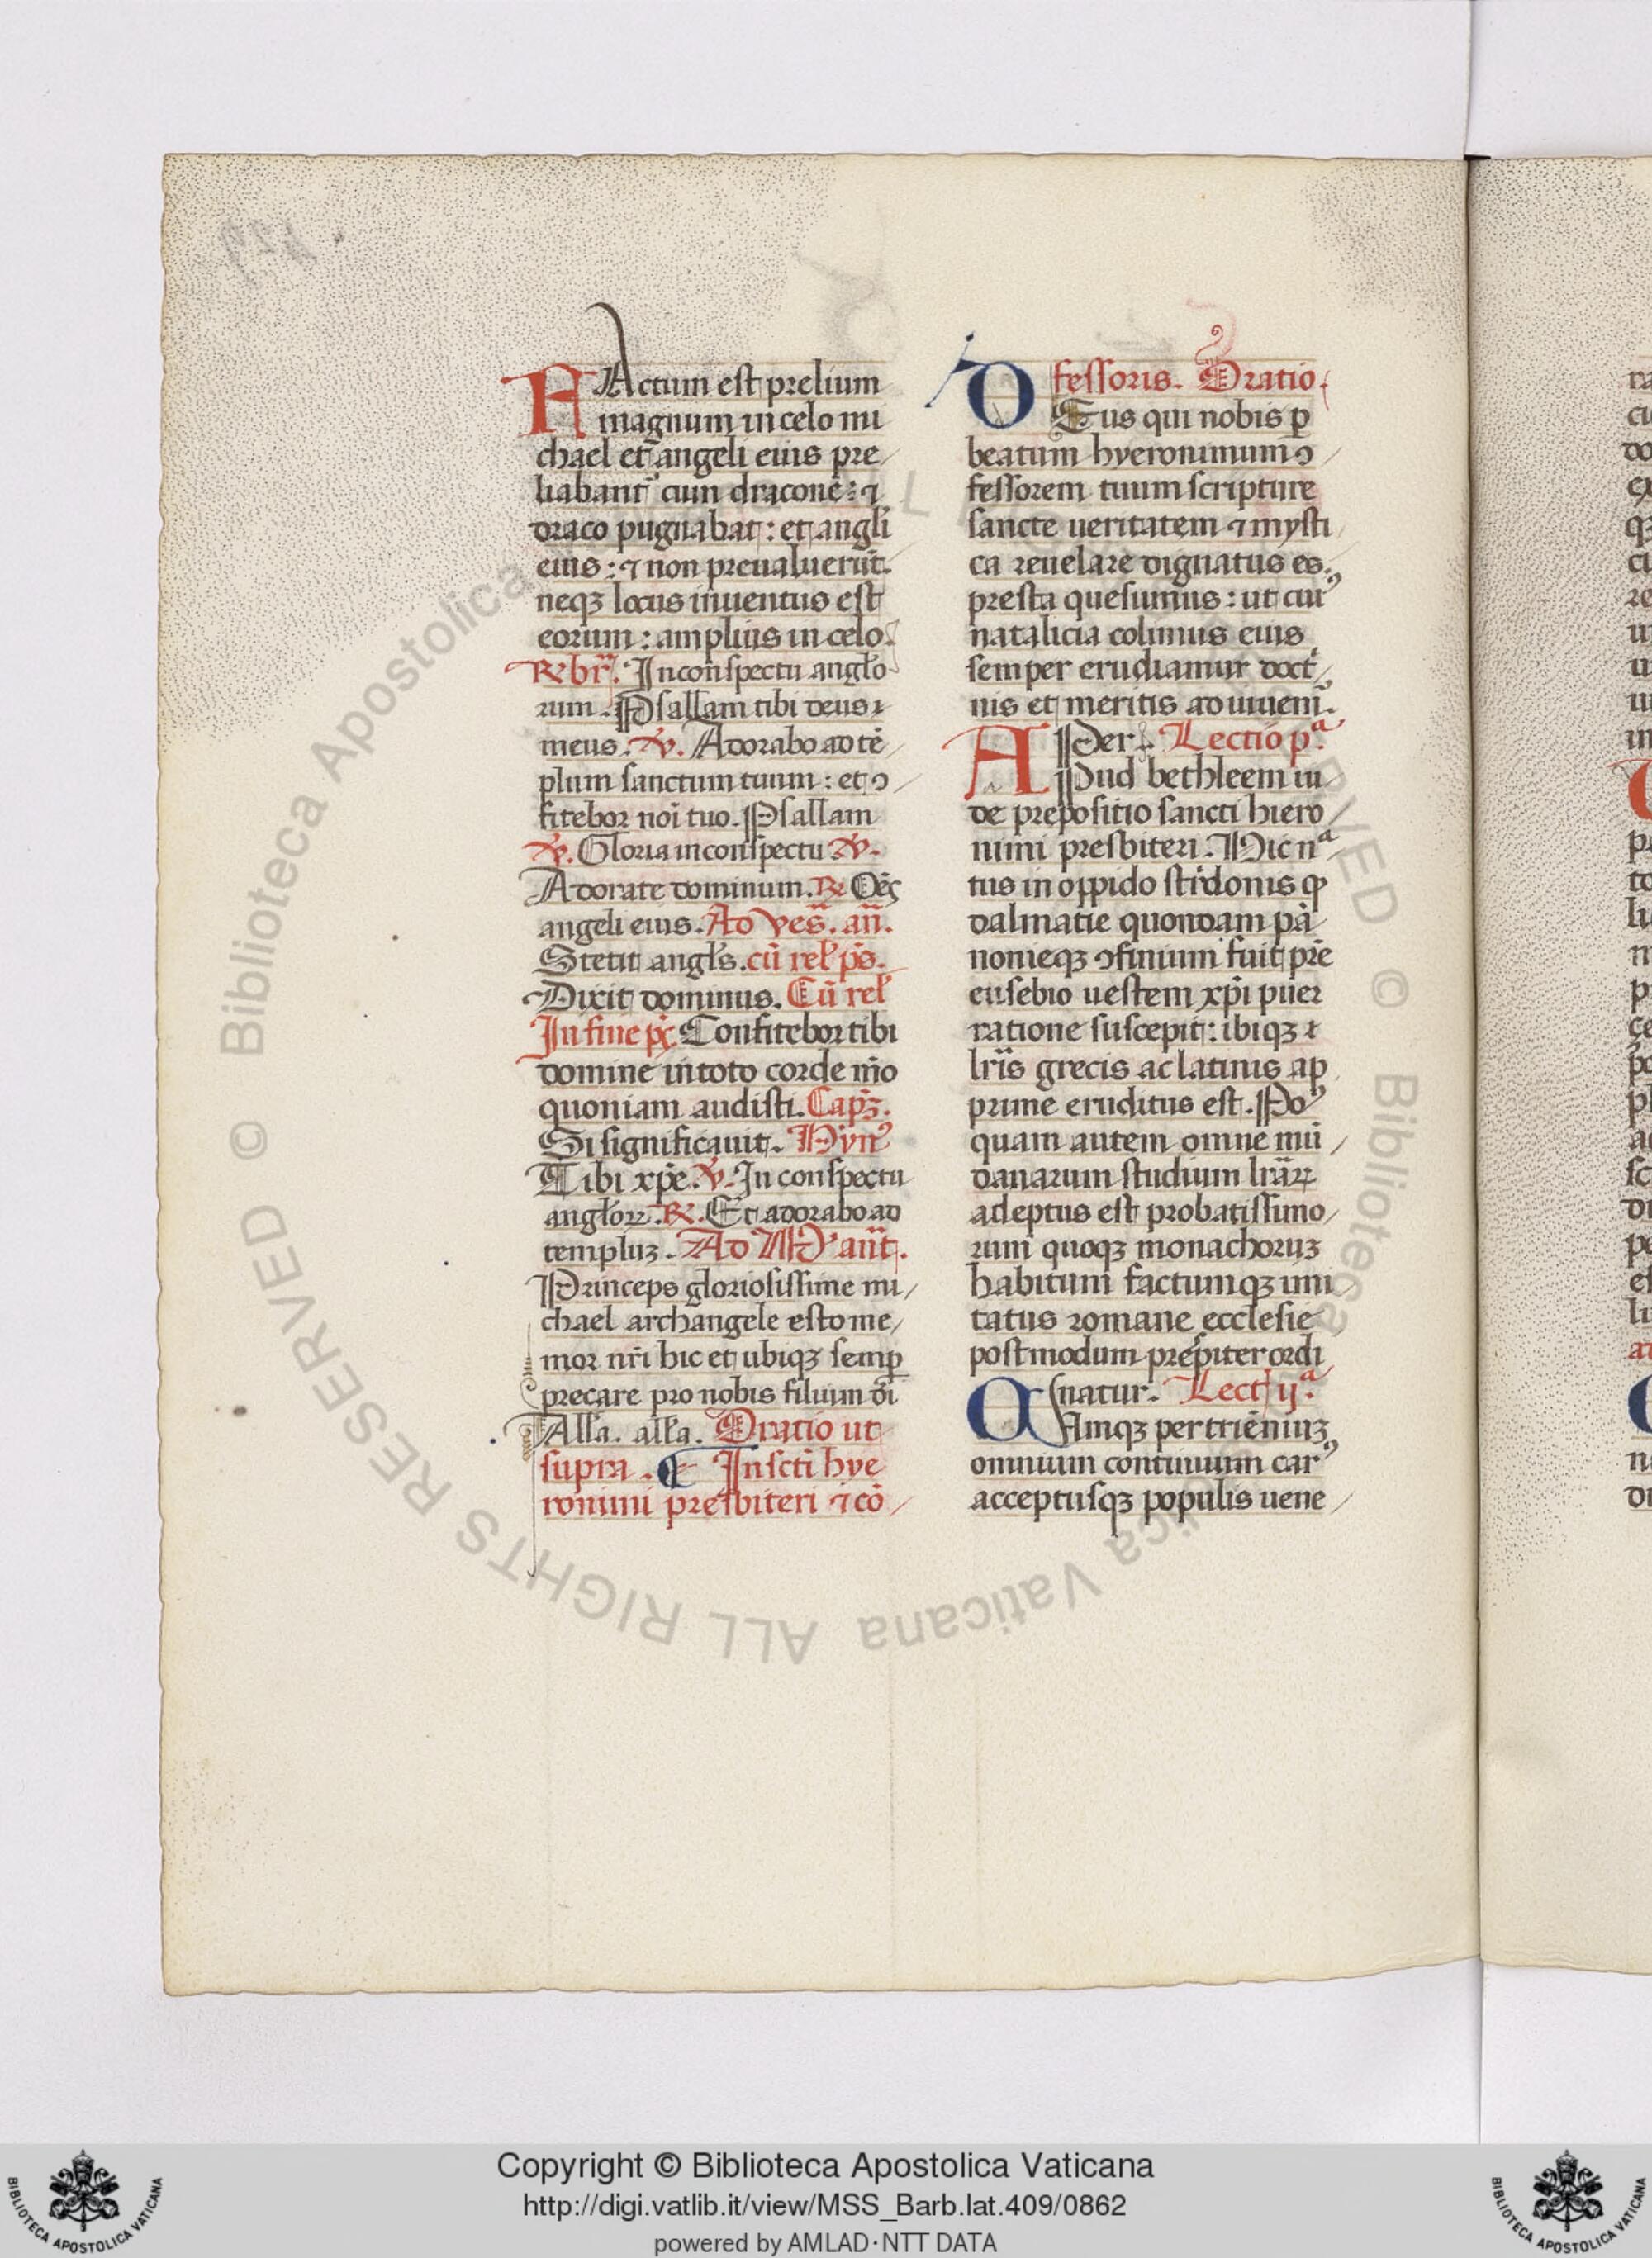 FActum est prelium
magnum in celo mi
chael et angeli eius pre
liabant᷒ cum dracone: ⁊
draco pugnabat: et angłi
eius: ⁊ non preualuerūt.
neqꝫ locus inuentus est
eorum: amplius in celo
℟ br̄. In conspectu angło
rum. Psallam tibi deus
meus. ℣. Adorabo ad tē
plum sanctum tuum: et ꝯ
fitebor noī tuo. Psallam
℣. Gloria in conspectu ℣.
Adorate dominum. ℟ Oēs
angeli eius. Ad ves̄. añ.
Stetit angłs. cū rel' ps̄.
Dixit dominus. Cū rel'
In fine ps̄ Confitebor tibi
domine in toto corde mō
quoniam audisti. Capꝫ.
Si significauit. Hyn᷒
Tibi xp̄e. ℣. In conspectu
angłoꝝ. ℟. Et adorabo ad
templuꝫ. Ad M᷒ añt.
Princeps gloriosissime mi
chael archangele esto me
mor nr̄i hic et ubiqꝫ semꝑ
precare pro nobis filium dī
Alła. alła. Oratio ut
supra. ¶ In scti hye
ronimi presbiteri ⁊ cō
fessoris. Oratio.
DEus qui nobis ꝑ
beatum hyeronimum ꝯ
fessorem tuum scripture
sancte ueritatem ⁊ mysti
ca reuelare dignatus es.
presta quesumus: ut cui᷒
natalicia colimus eius
semper erudiamur doct'
nis et meritis adiuuem᷒.
Per. Lectio pª.
APud bethleem iu
de prepositio sancti hiero
nimi presbiteri. Hic nª
tus in oppido stridonis qꝫ
dalmatie quondam pā
nonieqꝫ ꝯfinium fuit prē
eusebio uestem xp̄i puer
ratione suscepit: ibiqꝫ ⁊
lrīs grecis ac latinis ap
prime eruditus est. Po᷒
quam autem omne mū
danarum studium lrāꝝ
adeptus est probatissimo
rum quoqꝫ monachoruꝫ
habitum factumqꝫ imi
tatus romane ecclesie
postmodum pres̄piter ordi
natur. Lect ijª.
QAmqꝫ per triēniuꝫ
omnium continuum car᷒
acceptusqꝫ populis uene
© Biblioteca Apostolica Vaticana ALL RIGHTS RESERVED
Copyright © Biblioteca Apostolica Vaticana
http://digi.vatlib.it/view/MSS_Barb.lat.409/0862
powered by AMLAD·NTT DATA
BIBLIOTECA APOSTOLICA VATICANA
BIBLIOTECA APOSTOLICA VATICANA